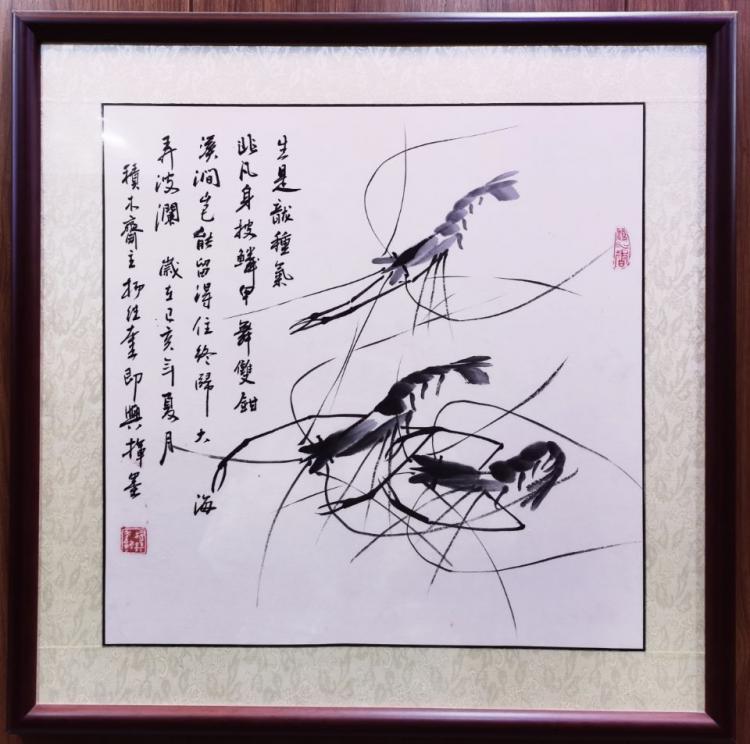 生是龍種氣
非凡身披鱗甲舞雙鉗
溪澗豈能留得住終歸大海
弄波瀾 歲在己亥年夏月
積木齋主 即興揮墨